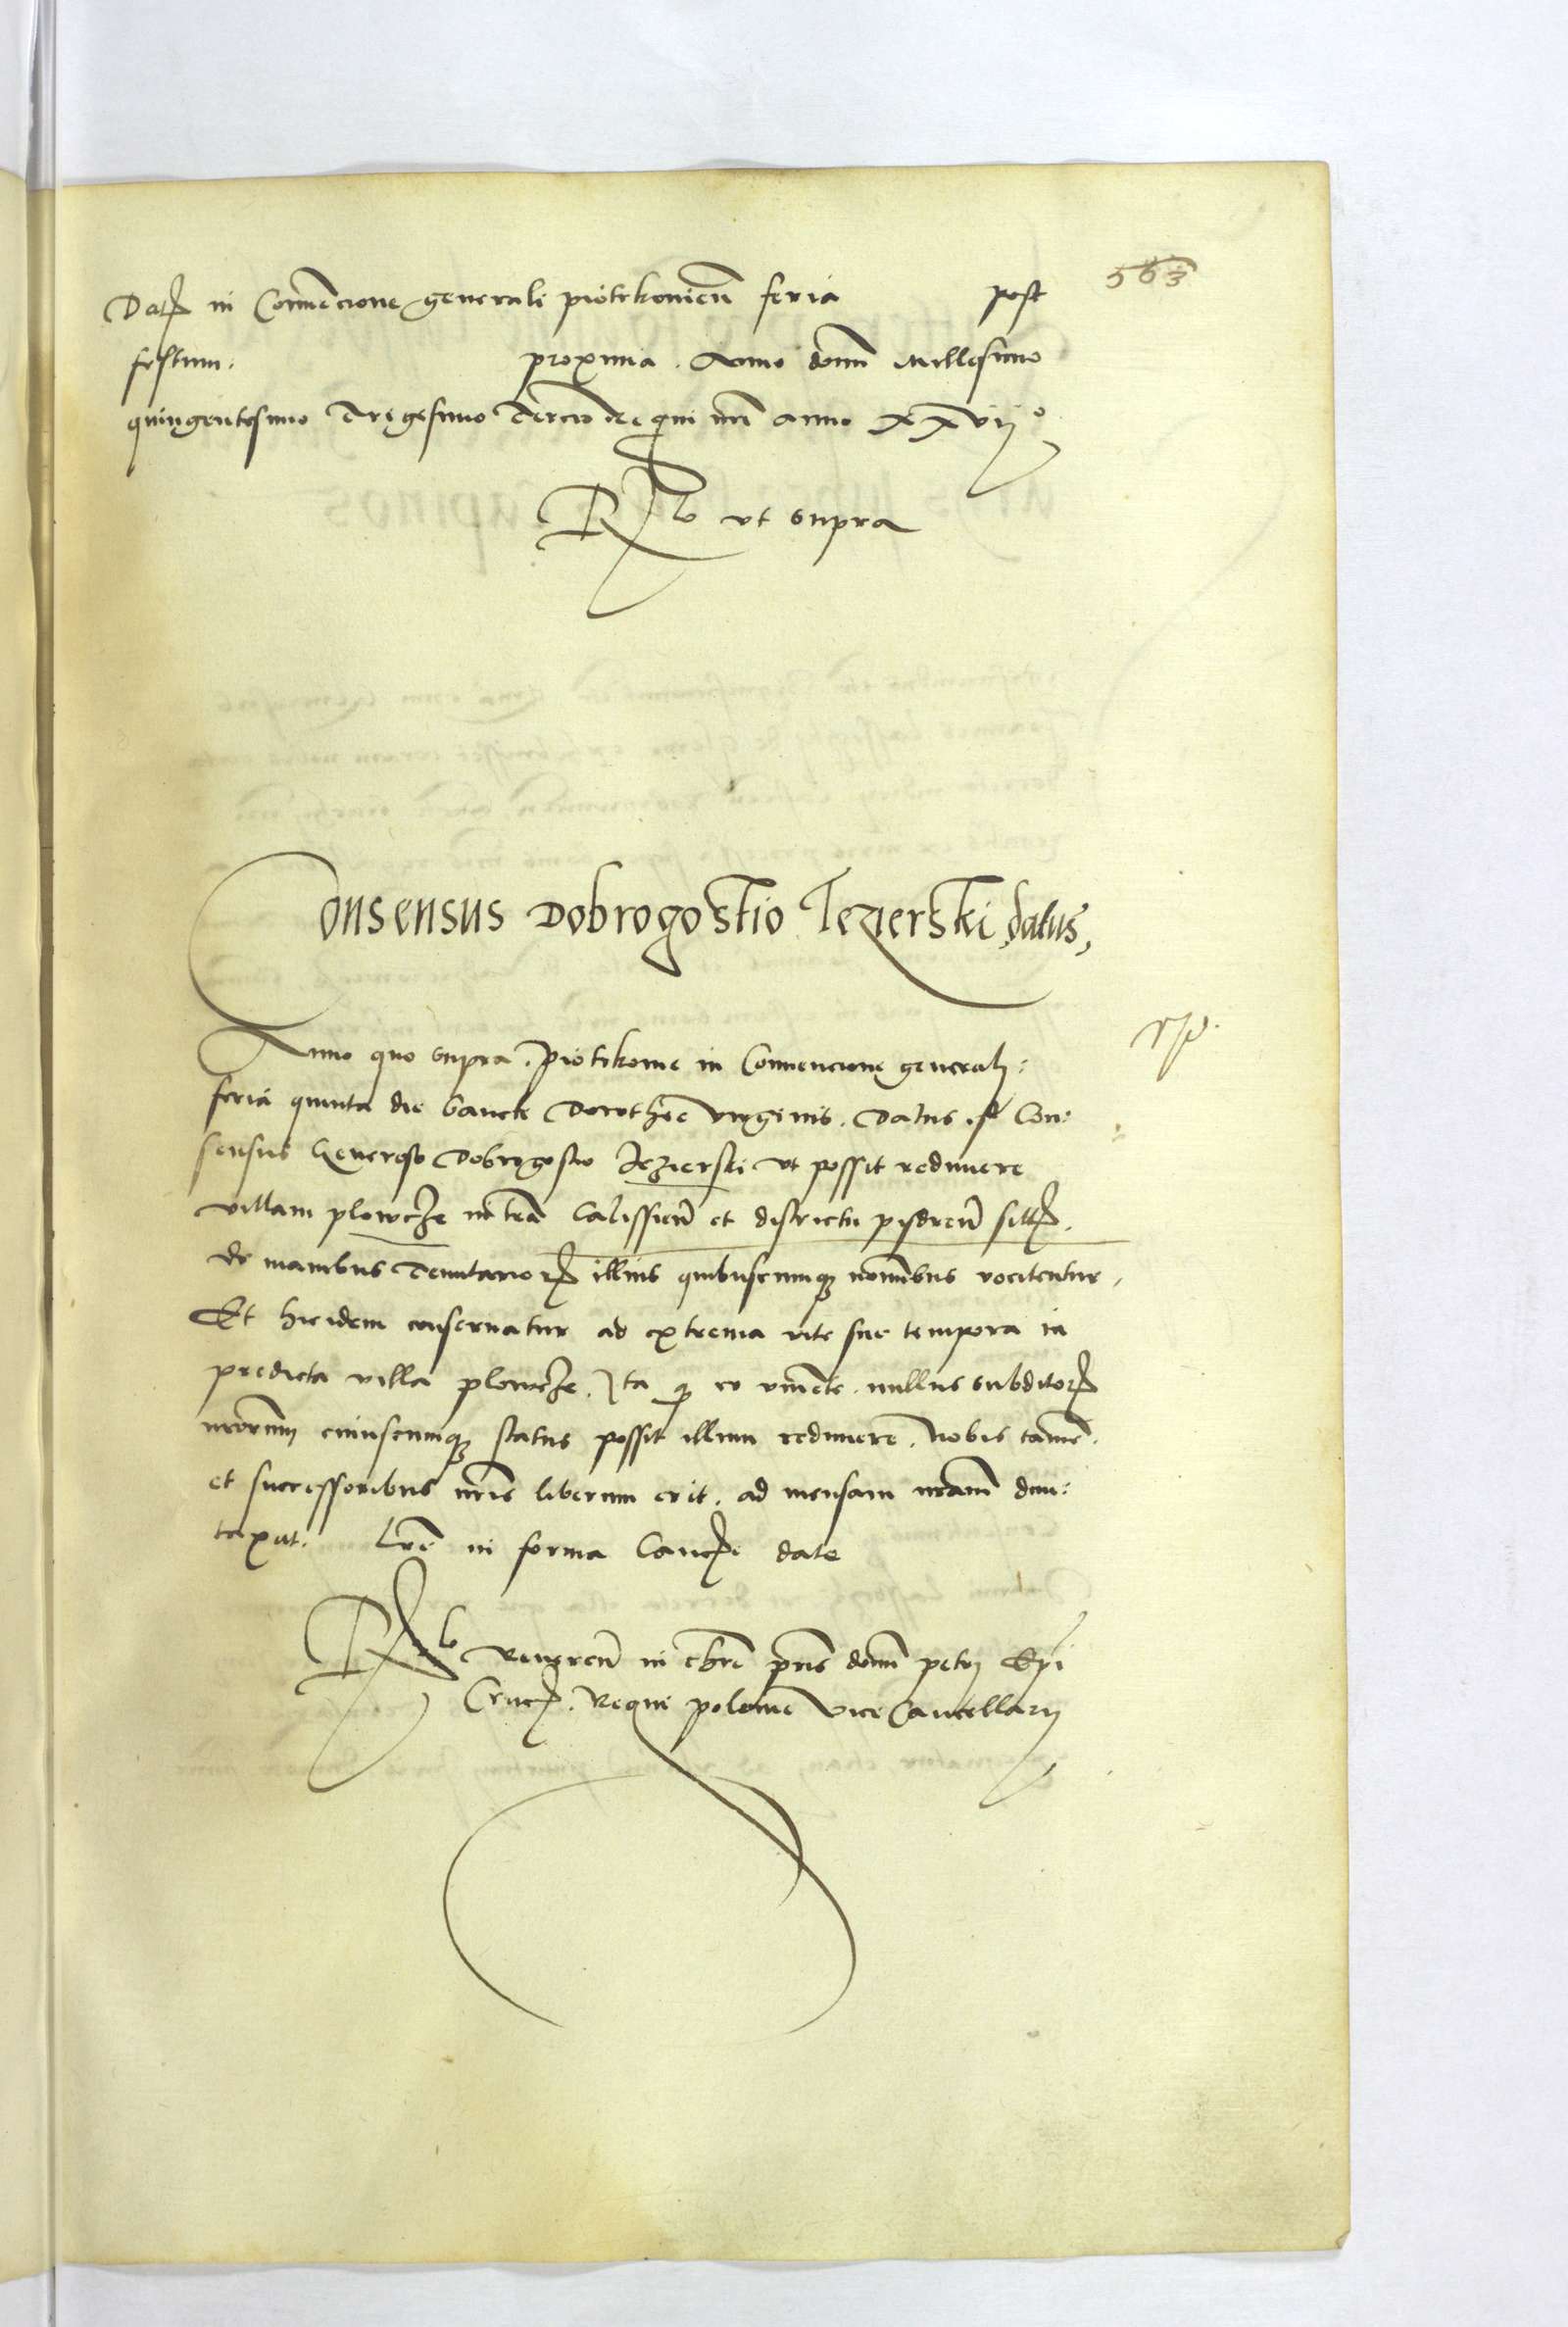 563
Dat in Convencione generali piotrkovien feria post
festum. proxima. Anno domi Millesimo
quingentesimo Trigesimo Tercio Regni nri anno XXVII°
Rlo ut supra
Consensus Dobrogostio Iezierski datus,
Anno quo supra. Piotrkovie in Convencione generali:
feria quinta die Sancte Dorothee virginis. Datus est Con:
sensus Generoso Dobrogostio Iezierski ut possit redimere
villam plowcze in tera Calissien et districtu pisdren sitt.
de manibus Tenutarior illius quibuscumq nominibus vocitentur.
Et hic idem conservatur ad extrema vite sue tempora in
predicta villa plowcze. Ita q eo vivente nullus subditor
nrorum cuiuscumq status possit illum redimere. Nobis tamen.
et successoribus nris liberum erit. ad mensam nram dun:
taxat. Lre in forma Canc date
Rlo Reveren in chro pris domi petri Epi
Crac. Regni polonie Vice Cancellarii